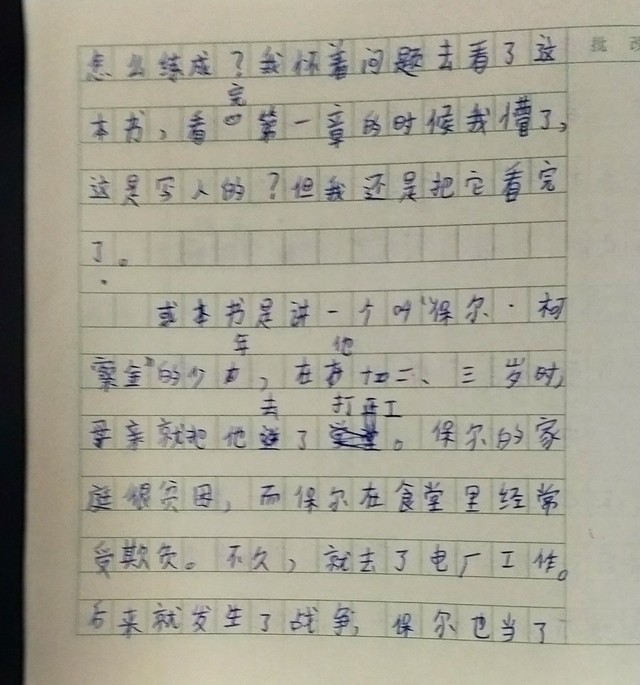 批 改
怎么练成？我怀着问题去看了这
完
本书，看 第一章的时候我懵了，
这是写人的？但我还是把它看完
了。
或本书是讲一个叫“保尔·柯
年 他
察金”的少 ，在 十二、三岁时，
去 打工
母亲就把他送了 。保尔的家
庭很贫困，而保尔在食堂里经常
受欺负。不久，就去了电厂工作。
后来就发生了战争，保尔也当了